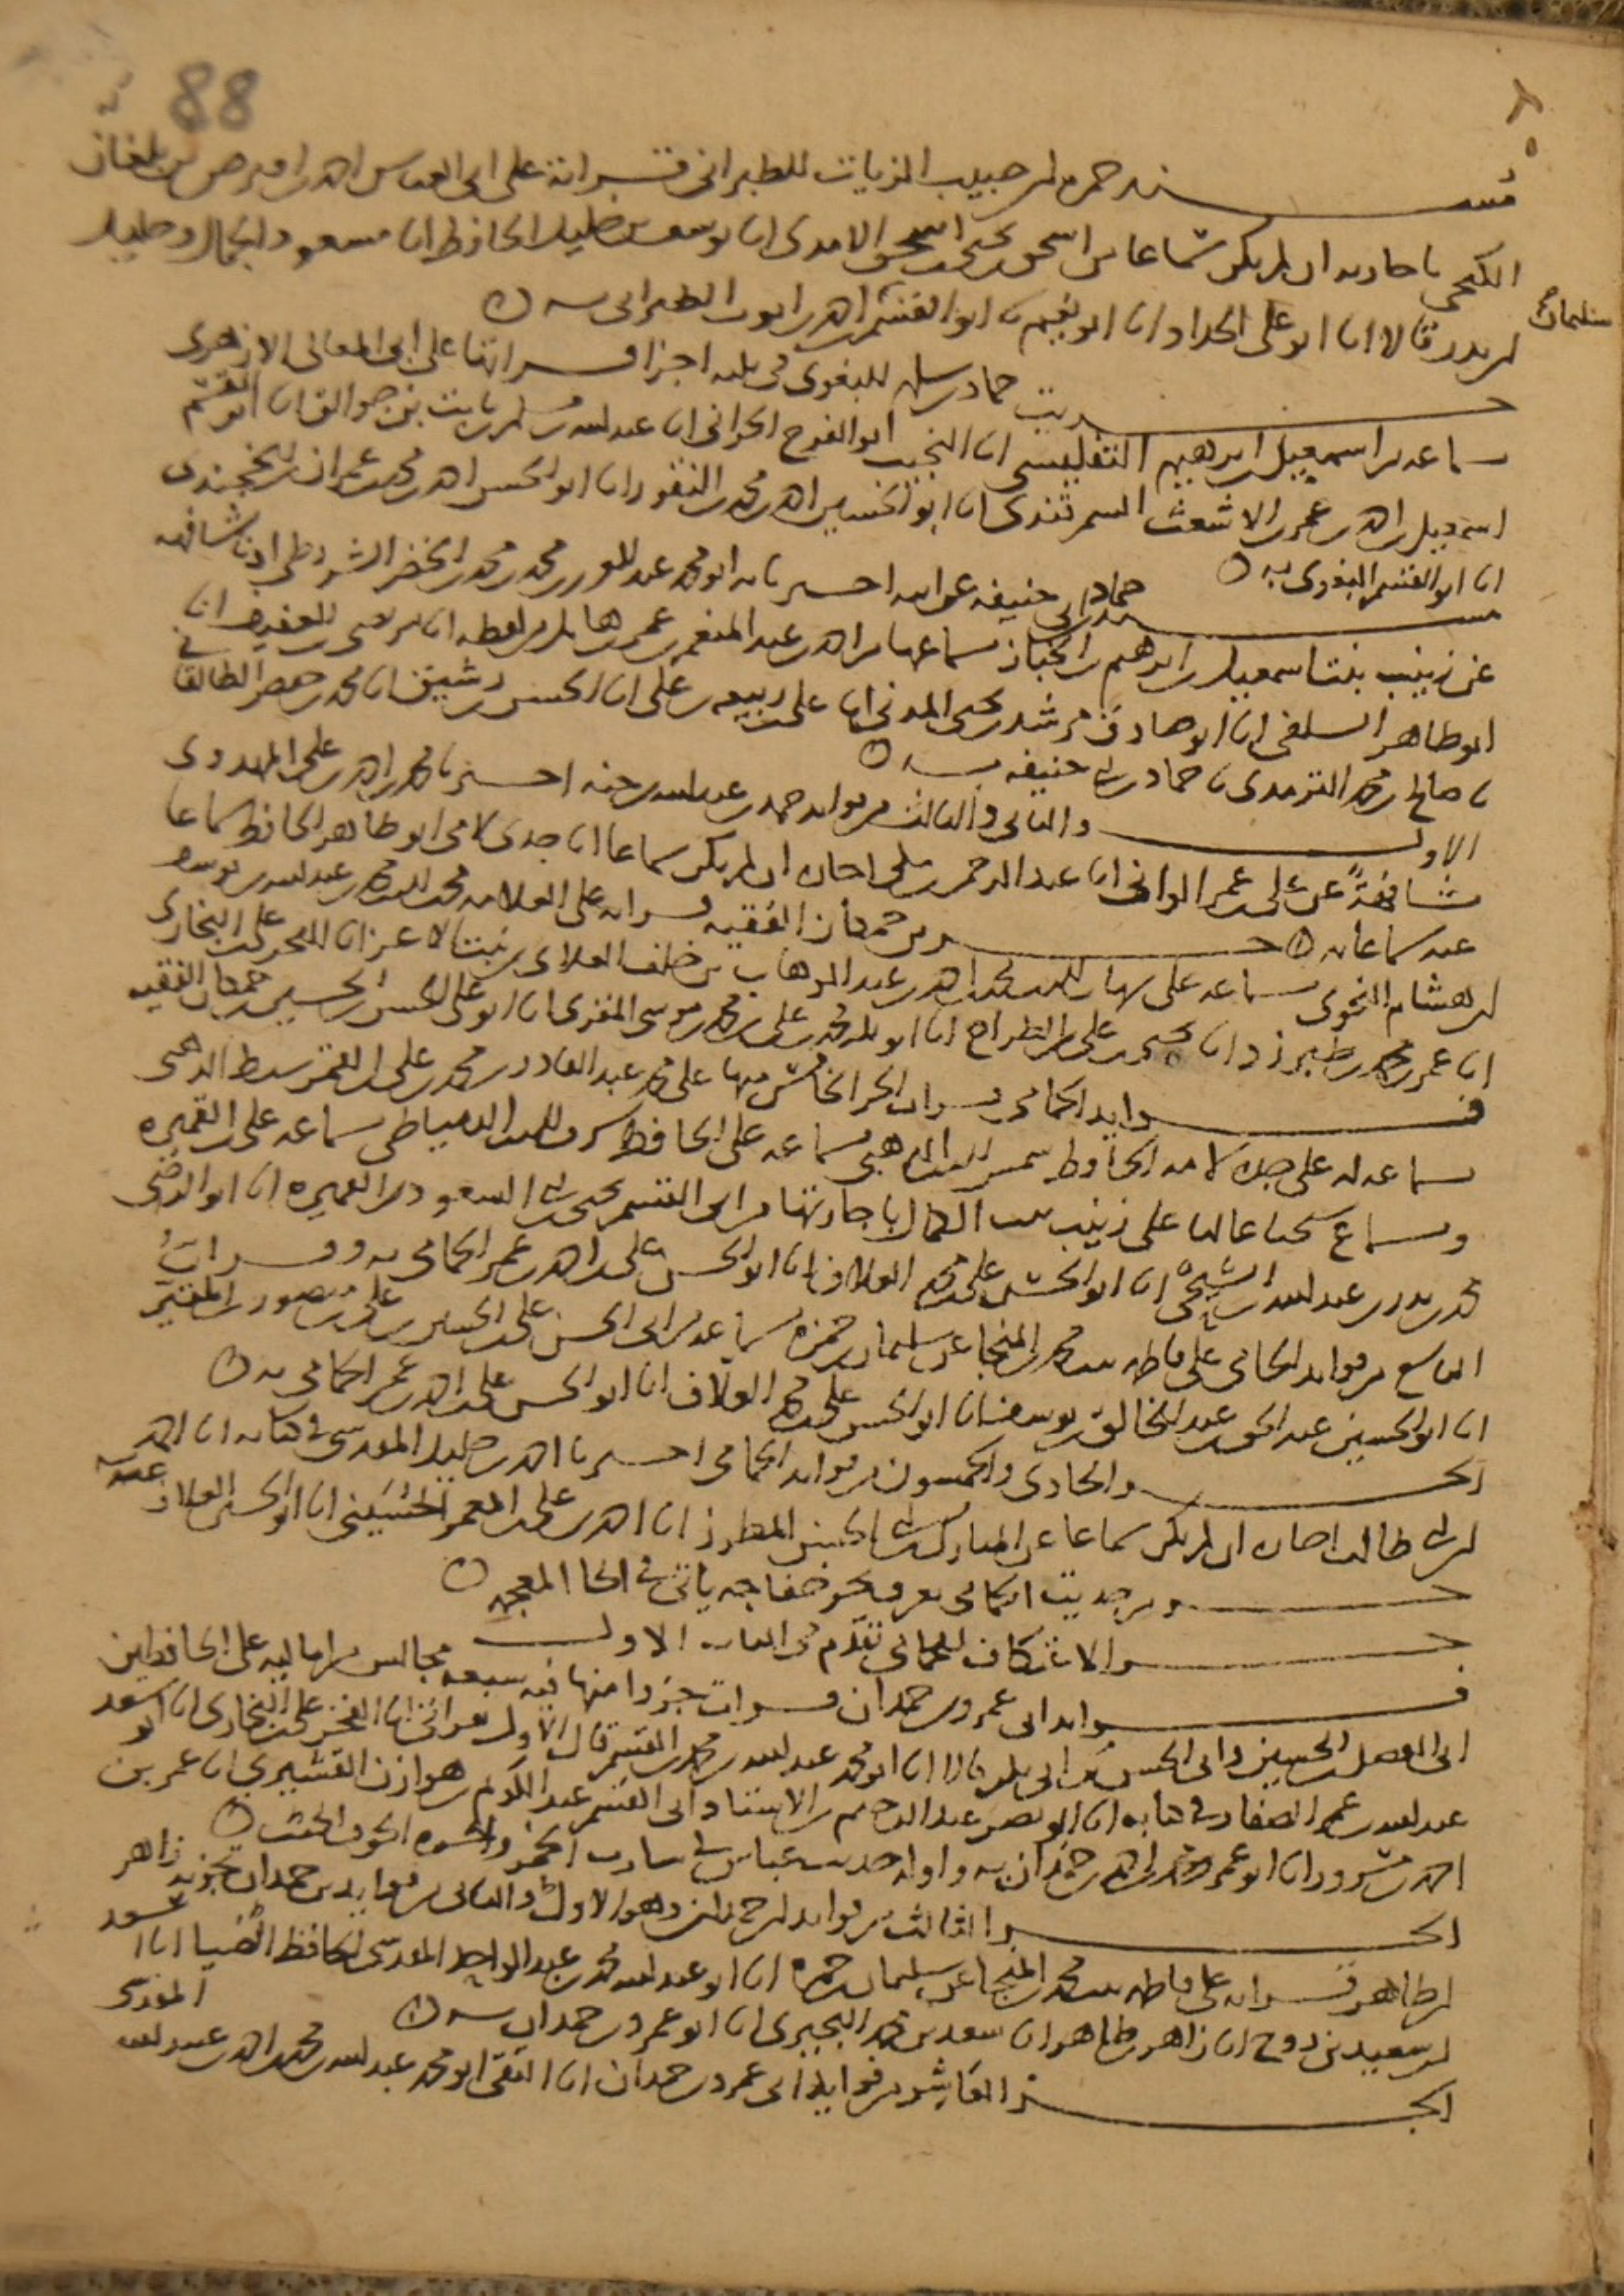 88
مسند حمزة بن حبيب الزيات للطبراني قراته على ابي العباس احمد بن اقبرص بن بلغاق
الكنجي باجازته ان لم يكن سماعا من اسحق بن يحيى بن اسحق الامدي انا يوسف بن خليل الحافظ انا مسعود الجمال وخليل
بن بدر قالا انا ابو علي الحداد انا ابو نعيم نا ابو القسم سليمان بن احمد بن ايوب الطبراني به
حديث حماد بن سلمه للبغوي في ثلثه اجزا قراتها على ابي المعالي الازهري
سماعه من اسمعيل بن ابرهيم التفليسي انا النجيب ابو الفرج الحراني انا عبد الله بن مسلم بن ثابت بن جوالق انا ابو القسم
اسمعيل بن احمد بن عمر بن الاشعث السمرقندي انا ابو الحسين احمد بن محمد بن النقور انا ابو الحسن احمد بن محمد بن عمران بن الجندي
انا ابو القسم البغوي به
مسند حماد بن ابي حنيفه عن ابيه اخبرنا به ابو محمد عبد الله بن محمد بن محمد بن الخضر الشروطي اذنا مشافهه
عن زينب بنت اسمعيل بن ابرهيم بن الخباز سماعها من احمد بن عبد المنعم بن عمر
ابو طاهر السلفي انا ابو صادق مرشد بن يحيى المدني انا علي بن ربيعه بن علي انا الحسن بن رشيق انا محمد بن حفص الطالقاني
نا صالح بن محمد الترمذي نا حماد بن ابي حنيفه به
الاول والثاني والثالث من فوايد حمد بن عبد الله بن حنه اخبرنا محمد بن احمد بن علي المهدوي
مشافهةً عن علي بن عمر الواني انا عبد الرحمن بن مكي اجازه ان لم يكن سماعا انا جدي لامي ابو طاهر الحافظ سماعا
عنه سماعا به حديث بن حمكان الفقيه قراته على العلامه محب الدين محمد بن عبد الله بن يوسف
بن هشام النحوي سماعه على احمد بن عبد الوهاب بن خلف العلاي بن بنت الاعز انا الفخر علي بن البخاري
انا عمر بن محمد بن طبرزد انا يحيى بن علي بن الطراح انا ابو بكر محمد بن علي بن محمد بن موسى المقري انا ابو علي الحسن بن الحسين بن حمكان الفقيه
فوايد الحمامي قرات الجز الخامس منها على محمد عبد القادر بن محمد بن علي بن القمر سبط الذهبي
سماعه له على جده لامه الحافظ شمس الدين الذهبي سماعه على الحافظ شرف الدين الدمياطي سماعه على بن القميره
وسماع شيخنا عاليا على زينب بنت الكمال باجازتها من ابي القسم يحيى بن ابي السعود بن القميره انا ابو الرضى
محمد بن بدر بن عبد الله الشيحي انا ابو الحسن علي بن محمد العلاف انا ابو الحسن علي بن احمد بن عمر الحمامي به وقراتُ
التاسع من فوايد الحمامي على فاطمه بنت محمد بن المنجا عن سليمان بن حمزه سماعه من ابي الحسن علي بن الحسين بن علي بن منصور بن المقير
انا ابو الحسين عبد الحق بن عبد الخالق بن يوسف انا ابو الحسن علي بن محمد العلاف انا ابو الحسن علي بن احمد بن عمر الحمامي به
الجز والحادي والخمسون من فوايد الحمامي اخبرنا احمد بن خليل المقدسي في كتابه انا احمد
بن ابي طالب اجازه ان لم يكن سماعا عن المبارك بن ابي الحسن المطرز انا احمد بن علي بن المعمر الحسيني انا ابو الحسن العلاف عنه به
حـ ومن حديث الحمامي يعرف بجز خفاجه ياتي في الخا المعجمه
جز الاعتكاف للحمامي تقدم في الباب الاول
فوايد ابي عمرو بن حمدان قرات جزءا منها فيه سبعه مجالس من اماليه على الحافظين
ابي الفضل بن الحسين وابي الحسن بن ابي بكر قالا انا ابو محمد عبد الله بن محمد بن القيم قال الاول بقراتي انا الفخر علي بن البخاري انا ابو سعد
عبد الله بن عمر الصفار في كتابه انا ابو نصر عبد الرحيم بن الاستاذ ابي القسم عبد الكريم بن هوازن القشيري انا عمر بن
احمد بن مسرور انا ابو عمرو محمد بن احمد بن حمدان به واوله حديث بن عباس في
الجز الثالث من فوايد بن حمدان وهو الاول والثاني من فوايد بن حمدان تجزيه زاهر
بن طاهر قراته على فاطمه بنت محمد بن المنجا عن سليمان بن حمزه انا ابو عبد الله محمد بن عبد الواحد المقدسي الحافظ الضيا انا اسعد
بن سعيد بن روح انا زاهر بن طاهر انا سعيد بن محمد البحيري انا ابو عمرو بن حمدان به
الجز العاشر من فوايد ابي عمرو بن حمدان انا التقي ابو محمد عبد الله بن محمد بن احمد بن عبيد الله المقدسي